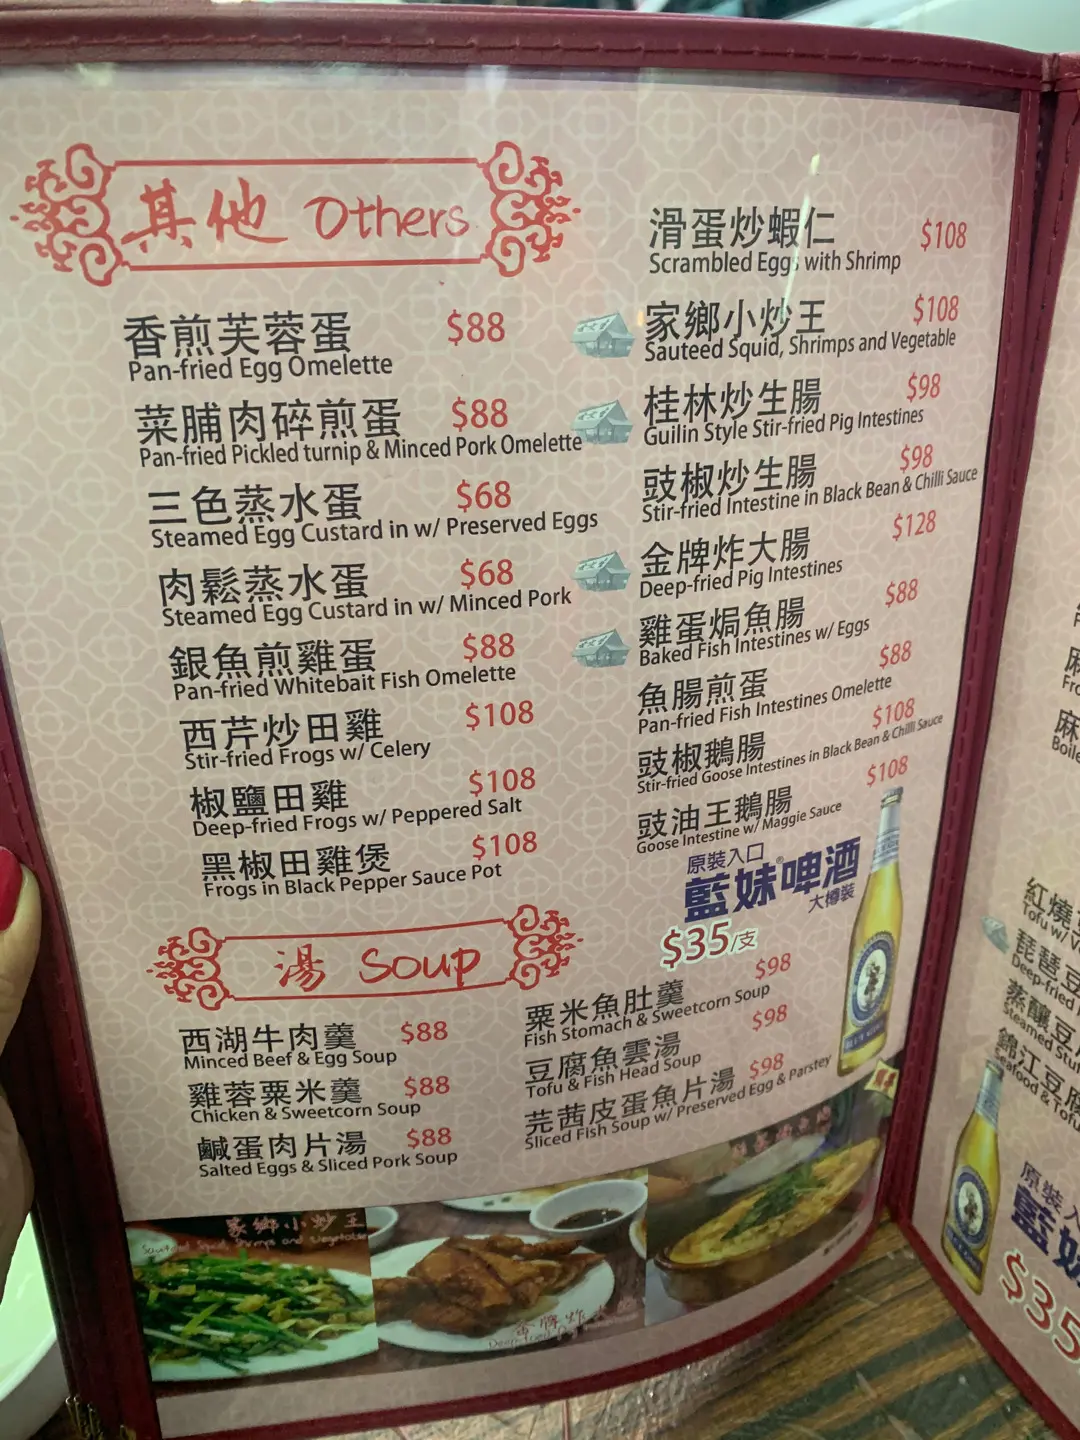 其他 Others
香煎芙蓉蛋 $88
Pan-fried Egg Omelette
菜脯肉碎煎蛋 $88
Pan-fried Pickled turnip & Minced Pork Omelette
三色蒸水蛋 $68
Steamed Egg Custard in w/ Preserved Eggs
肉鬆蒸水蛋 $68
Steamed Egg Custard in w/ Minced Pork
銀魚煎雞蛋 $88
Pan-fried Whitebait Fish Omelette
西芹炒田雞 $108
Stir-fried Frogs w/ Celery
椒鹽田雞 $108
Deep-fried Frogs w/ Peppered Salt
黑椒田雞煲 $108
Frogs in Black Pepper Sauce Pot
滑蛋炒蝦仁 $108
Scrambled Eggs with Shrimp
家鄉小炒王 $108
Sauteed Squid, Shrimps and Vegetable
桂林炒生腸 $98
Guilin Style Stir-fried Pig Intestines
豉椒炒生腸 $98
Stir-fried Intestine in Black Bean & Chilli Sauce
金牌炸大腸 $128
Deep-fried Pig Intestines
雞蛋焗魚腸 $88
Baked Fish Intestines w/ Eggs
魚腸煎蛋 $88
Pan-fried Fish Intestines Omelette
豉椒鵝腸 $108
Stir-fried Goose Intestines in Black Bean & Chilli Sauce
豉油王鵝腸 $108
Goose Intestine w/ Maggie Sauce
原裝入口
藍妹®啤酒
大樽裝
$35/支
湯 Soup
西湖牛肉羹 $88
Minced Beef & Egg Soup
雞蓉粟米羹 $88
Chicken & Sweetcorn Soup
鹹蛋肉片湯 $88
Salted Eggs & Sliced Pork Soup
粟米魚肚羹 $98
Fish Stomach & Sweetcorn Soup
豆腐魚雲湯 $98
Tofu & Fish Head Soup
芫茜皮蛋魚片湯 $98
Sliced Fish Soup w/ Preserved Egg & Parstey
家鄉小炒王
Sauteed Squid, Shrimps and Vegetable
金牌炸大
Deep-fried
麻
Fro
麻
Boile
紅燒
Tofu w/
琵琶豆
Deep-fried
蒸釀豆
Steamed Stuf
錦江豆腐
Seafood & Tofu
原裝入
藍妹
$35